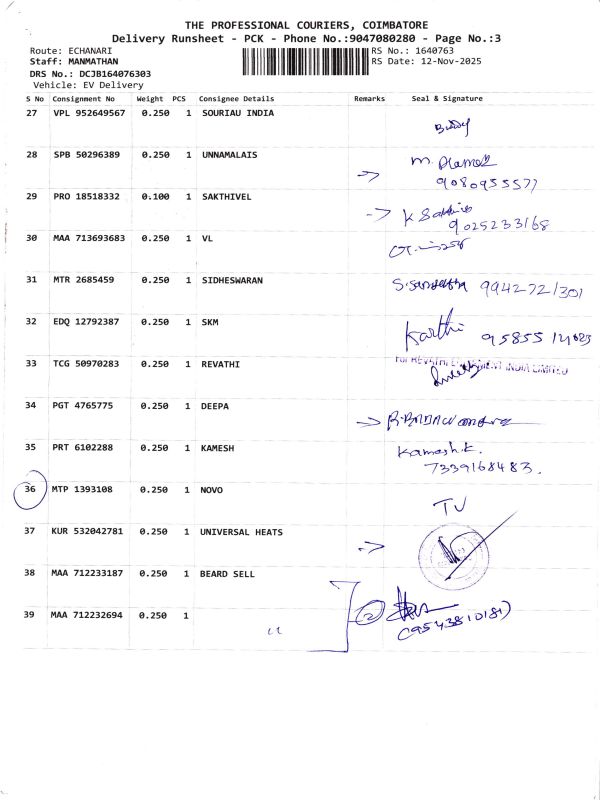 THE PROFESSIONAL COURIERS, COIMBATORE
Delivery Runsheet - PCK - Phone No.:9047080280 - Page No.:3
Route: ECHANARI RS No.: 1640763
Staff: MANMATHAN RS Date: 12-Nov-2025
DRS No.: DCJB164076303
Vehicle: EV Delivery
S No Consignment No Weight PCS Consignee Details Remarks Seal & Signature
27 VPL 952649567 0.250 1 SOURIAU INDIA
28 SPB 50296389 0.250 1 UNNAMALAIS
9080955577
29 PRO 18518332 0.100 1 SAKTHIVEL
9025233168
30 MAA 713693683 0.250 1 VL
31 MTR 2685459 0.250 1 SIDHESWARAN 9942721301
32 EDQ 12792387 0.250 1 SKM Karthi
33 TCG 50970283 0.250 1 REVATHI
34 PGT 4765775 0.250 1 DEEPA
35 PRT 6102288 0.250 1 KAMESH Kamesh.K.
7339168483.
36 MTP 1393108 0.250 1 NOVO
37 KUR 532042781 0.250 1 UNIVERSAL HEATS
38 MAA 712233187 0.250 1 BEARD SELL
39 MAA 712232694 0.250 1 (2)
(9543810181)